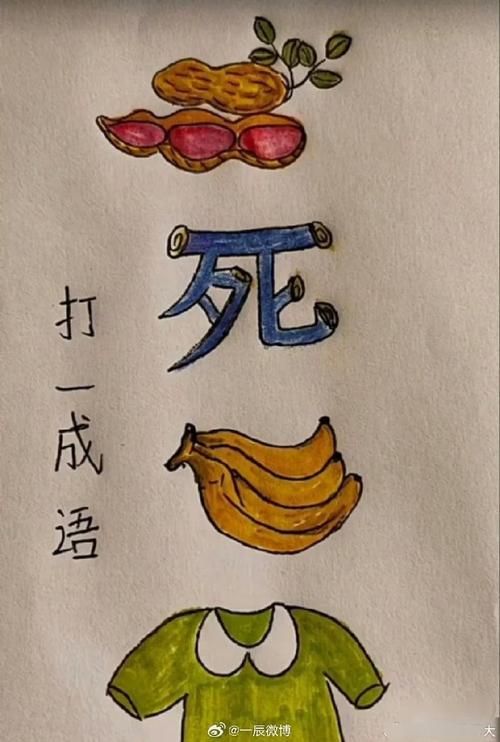 死
打一成语
@一辰微博
大